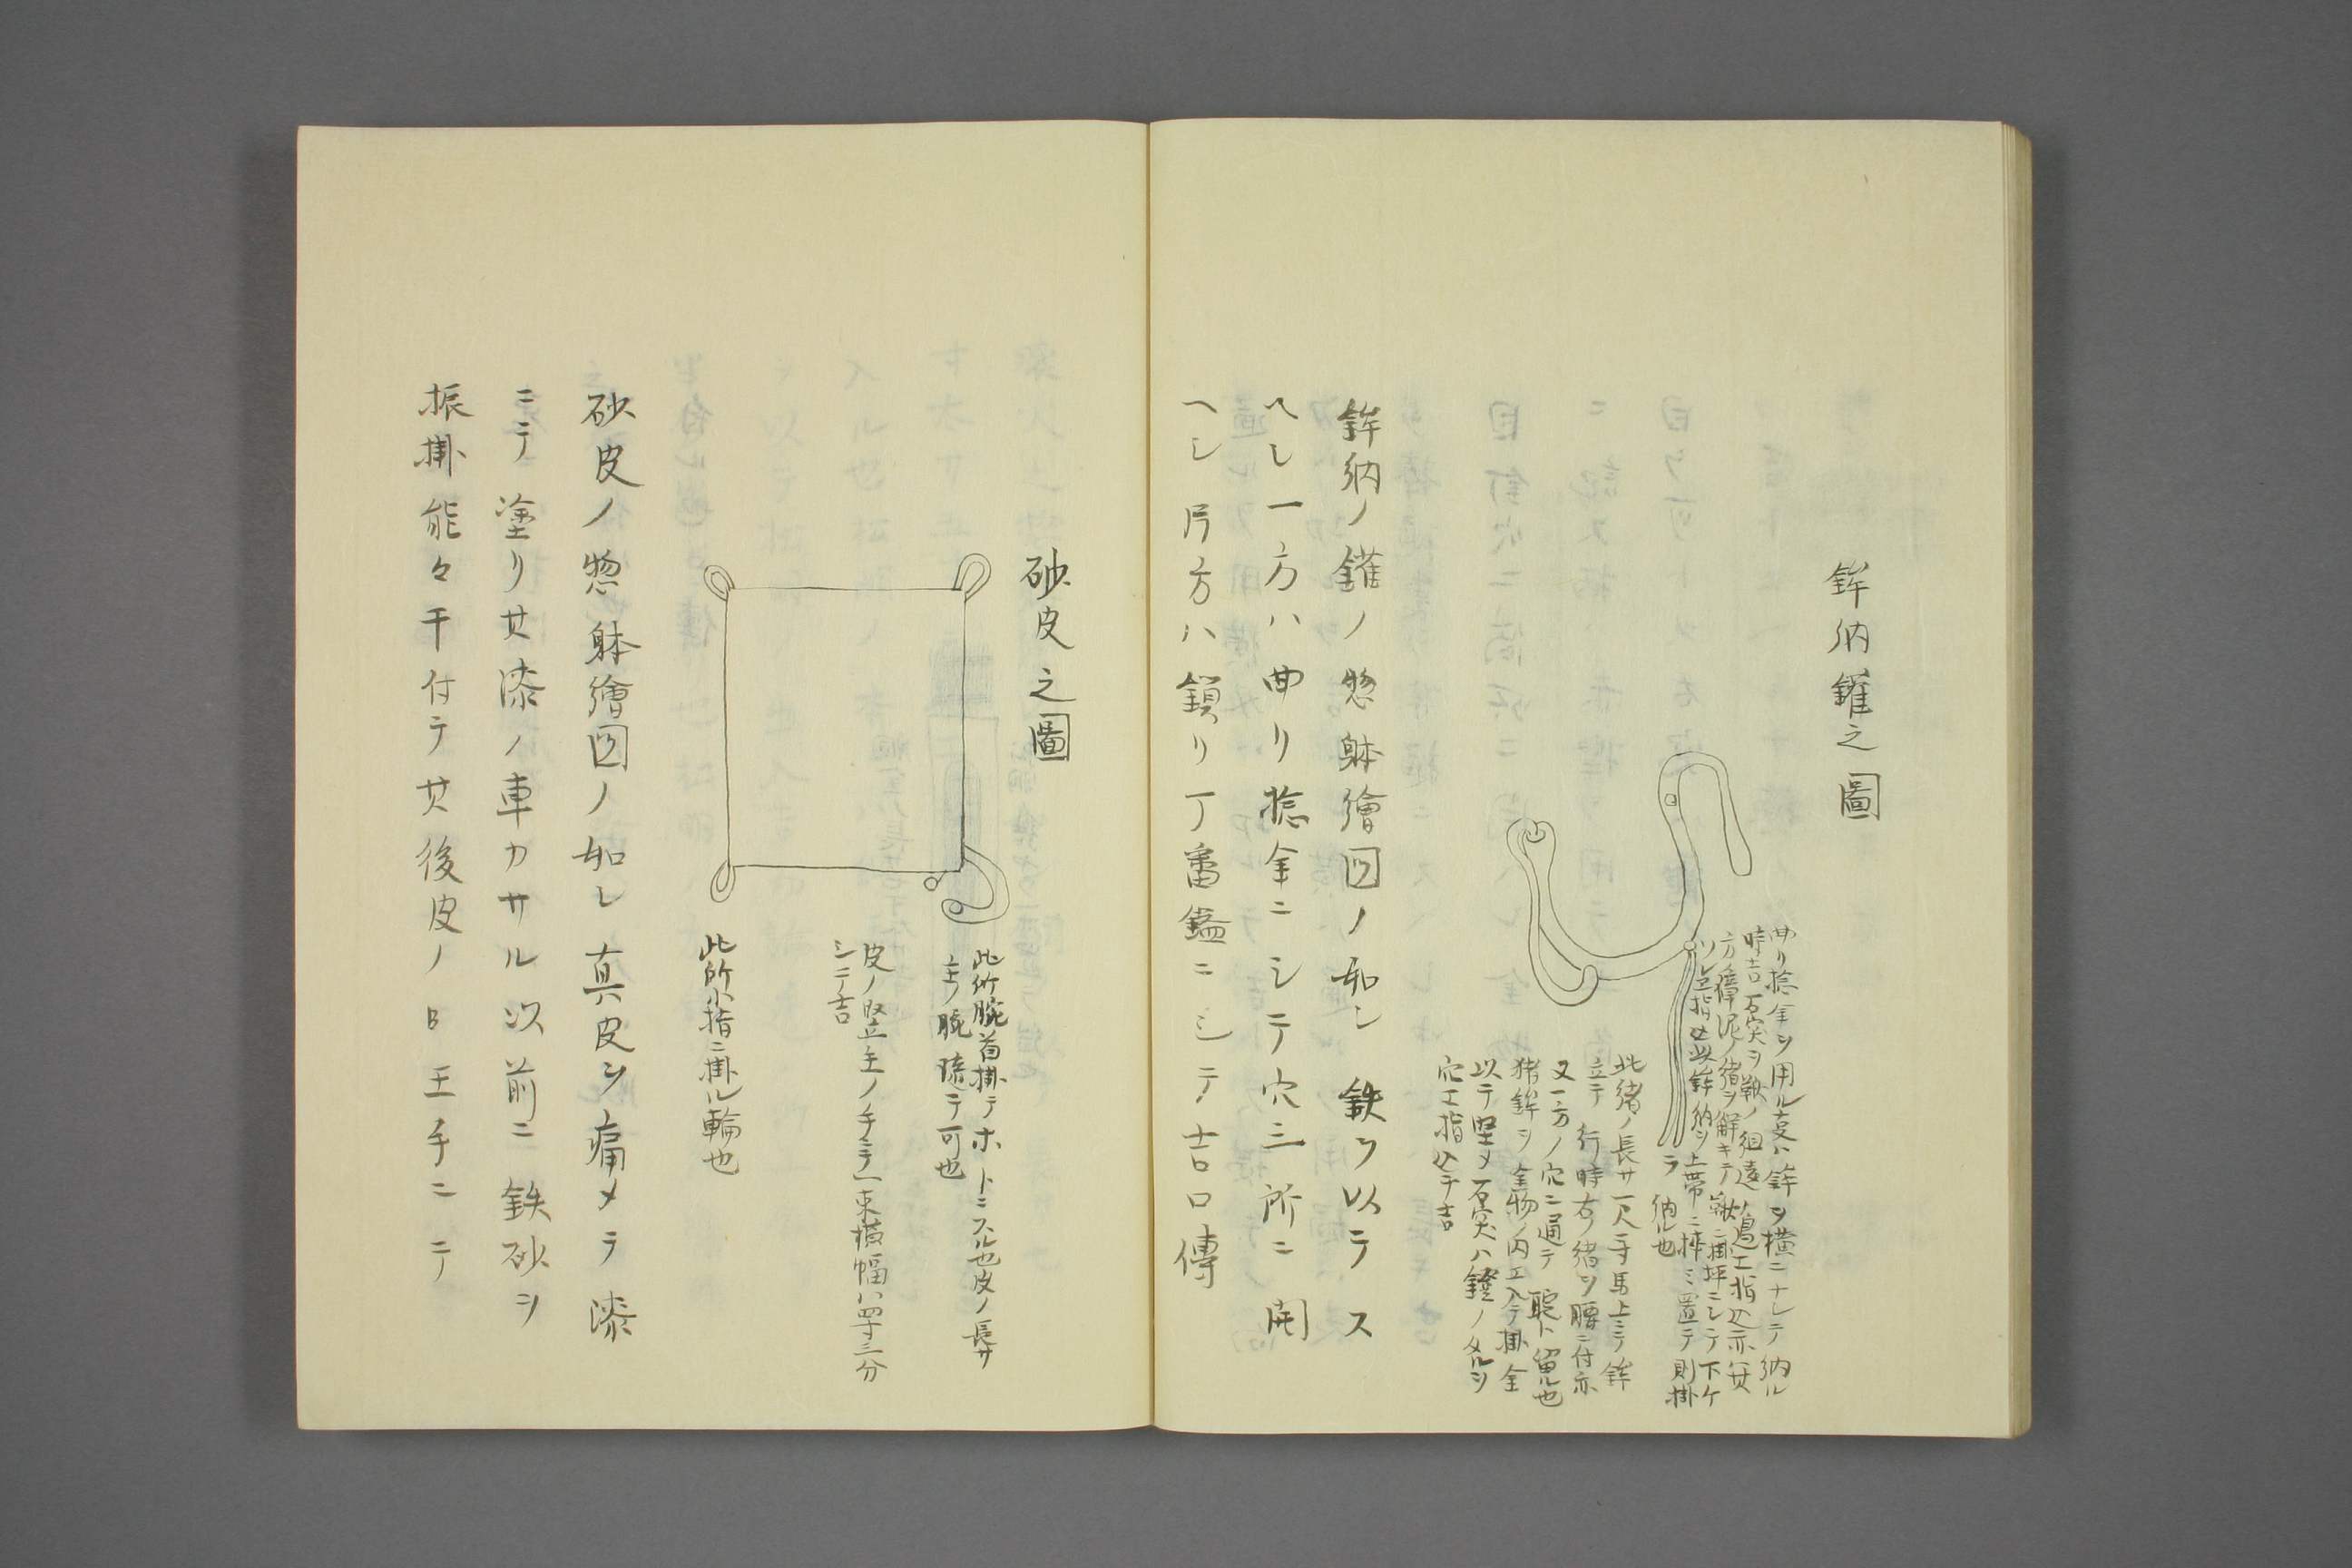 鉾納鑵之圖
曲リ捻金ヲ用ル㕝ハ鉾ヲ横ニナシテ納ル
時吉石突ヲ鞍ノ 遠 邉エ指込亦其
方 泥ノ緒ヲ解キテ 掛坪ニシテ下ケ
ソレエ指込 鉾納ヲ上帯ニ挿ミ置テ則掛
ラ納ル也
此緒ノ長サ一尺一寸馬上ニテ鉾
立テ行時右ノ緒ヲ腰ニ付亦
又一方ノ穴ニ通テ聢ト留ル也
猪鉾ヲ金物ノ内エ入テ掛金
以テ堅メ石突ハ鐙ノ ヲ
穴エ指込テ吉
鉾納ノ鑵ノ惣躰繪図ノ如シ鉄ヲ以テス
ヘシ一方ハ曲リ捻金ニシテ穴三所ニ開
ヘシ片方ハ鎖リ丁番鎰ニシテ吉口傳
砂皮之圖
此所腕首掛テホトニスル也皮ノ長サ
主ノ腕 テ可也
皮ノ竪主ノ手ニテ一束横幅ハ四寸三分
シテ吉
此所小指ニ掛ル輪也
砂皮ノ惣躰繪図ノ如シ真皮ヲ痛メテ漆
ニテ塗リ其漆ノ車カサル以前ニ鉄砂ヲ
振掛能々干付テ其後皮ノ日王手ニテ